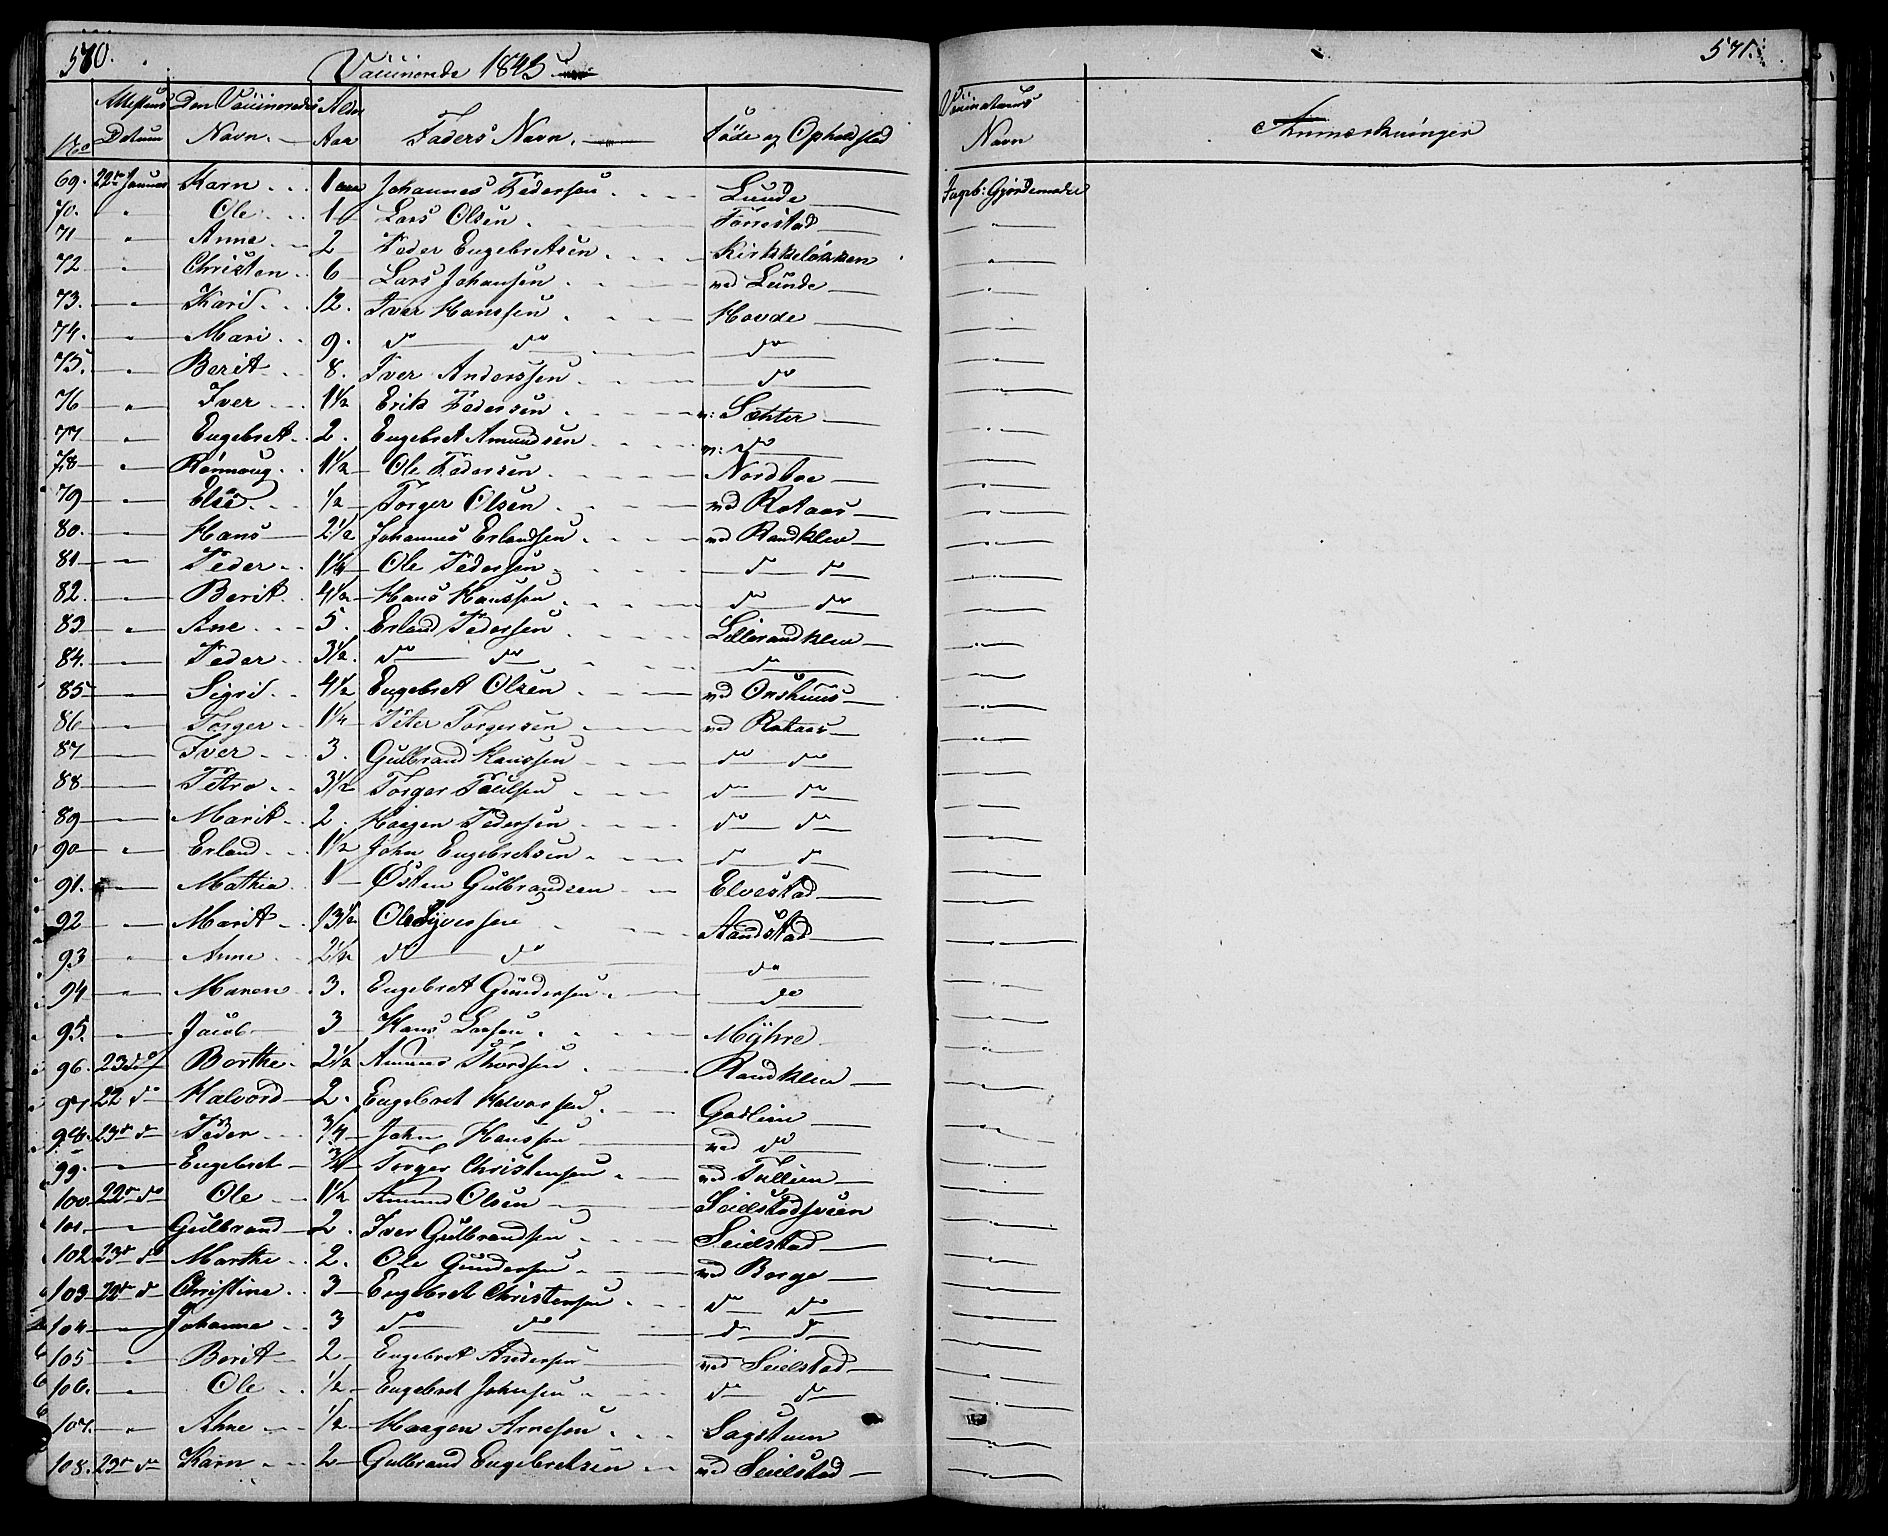 570.
Vaccinerede 1843
No Attestens Datum Den Vaccineredes Navn. Alder Aar Faders Navn. Føde og Opholdsted Vaccinateurs Navn Anmærkninger
571.
69. 22de Januar Karn 1 aar Johannes Pedersen Lunde Ingeb: Gjordemoder
70. " Ole 1 Lars Olsen Forrestad "
71 " Anne 2 Peder Engebretsen Kirkkeløkken "
72 " Christen 6 Lars Johansen ved Lunde "
73. " Kari 12. Iver Hanssen Hovde "
74. " Mari 9. do do do "
75. " Berit 8. Iver Anderssen do "
76 " Iver 1½ Erik Pedersen v: Sæhter "
77 " Engebret 2. Engebret Amundsen v: do "
78 " Rønnoug 1½ Ole Pedersen Nordboe "
79 " Else ½ Torger Olsen ved Rotaas "
80. " Hans 2½ Johannes Erlandsen ved Randklev "
81 " Peder 1¼ Ole Pedersen do do "
82. " Berit 4½ Hans Hanssen do do "
83 " Ane 5. Erland Pedersen Lillerandklev "
84. " Peder 3½ do do do "
85 " Sigrid 4½ Engebret Olsen ved Onshuus "
86 " Torger 1¼ Peter Torgersen ved Rotaas "
87 " Iver 3. Gulbrand Hanssen do do "
88 " Petra 3½ Torger Poulsen do do "
89 " Marit 2. Haagen Pedersen do do "
90 " Erland 1½ John Engebretsen do do "
91. " Mathea 1 Østen Gulbrandsen Elvestad "
92 " Marit 13½ Ole Syversen Aandstad "
93 " Anne 2½ do do do "
94 " Maren 3. Engebret Gundersen do "
95. " Jacob 3 Hans Larsen Myhre "
96. 23do Berthe 2½ Amund Thordsen Randklev "
97 22 do Halvord 2. Engebret Halvorsen Gaslien "
98. 23de do Peder 3/4 John Hanssen ved do "
99. " Engebret ¾ Torger Christensen ved Tullien "
100. 22de do Ole 1½ Amund Olsen Seielstadsveen "
101. " Gulbrand 2. Iver Gulbrandsen Seielstad "
102 23de do Marthe 2. Ole Gundersen ved Borge "
103. 22de do Christine 3 Engebret Christensen do do "
104 " Johanne 3 do do do do "
105 " Berit 2 Engebret Andersen ved Seielstad "
106. " Ole ½ Engebret Johnsen do do "
107. " Ahne ½ Haagen Arnesen Sagstuen "
108. 23de do Karn 2 Gulbrand Engebretsen ved Seielstad "